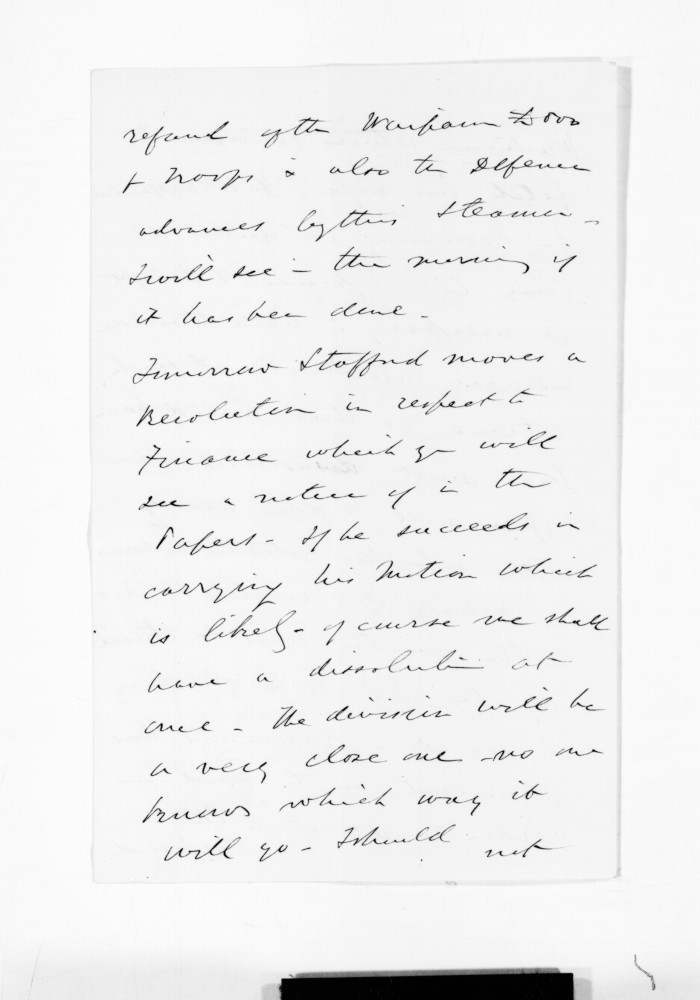 refund of the £5000
& Troops & also the Defence
advances by this Steamer -
I will see in the morning if
it has been done -
Tomorrow Stafford moves a
Resolution in respect to
Finance which you will
see a notice of in the
Papers - If he succeeds in
carrying his Motion which
is likely - of course we shall
have a dissolution at
once - The division will be
a very close one - no one
knows which way it
will go - I should not